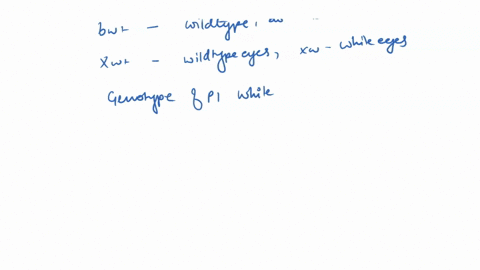 bw+ - wildtype,
Xw+ - wildtype eyes, xw - while eyes
Genotype of P1 while